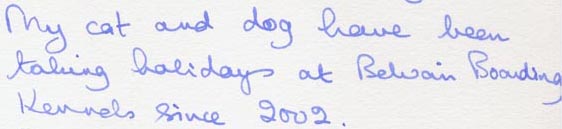 My cat and dog have been
taking holidays at Belvain Boarding
Kennels since 2002.